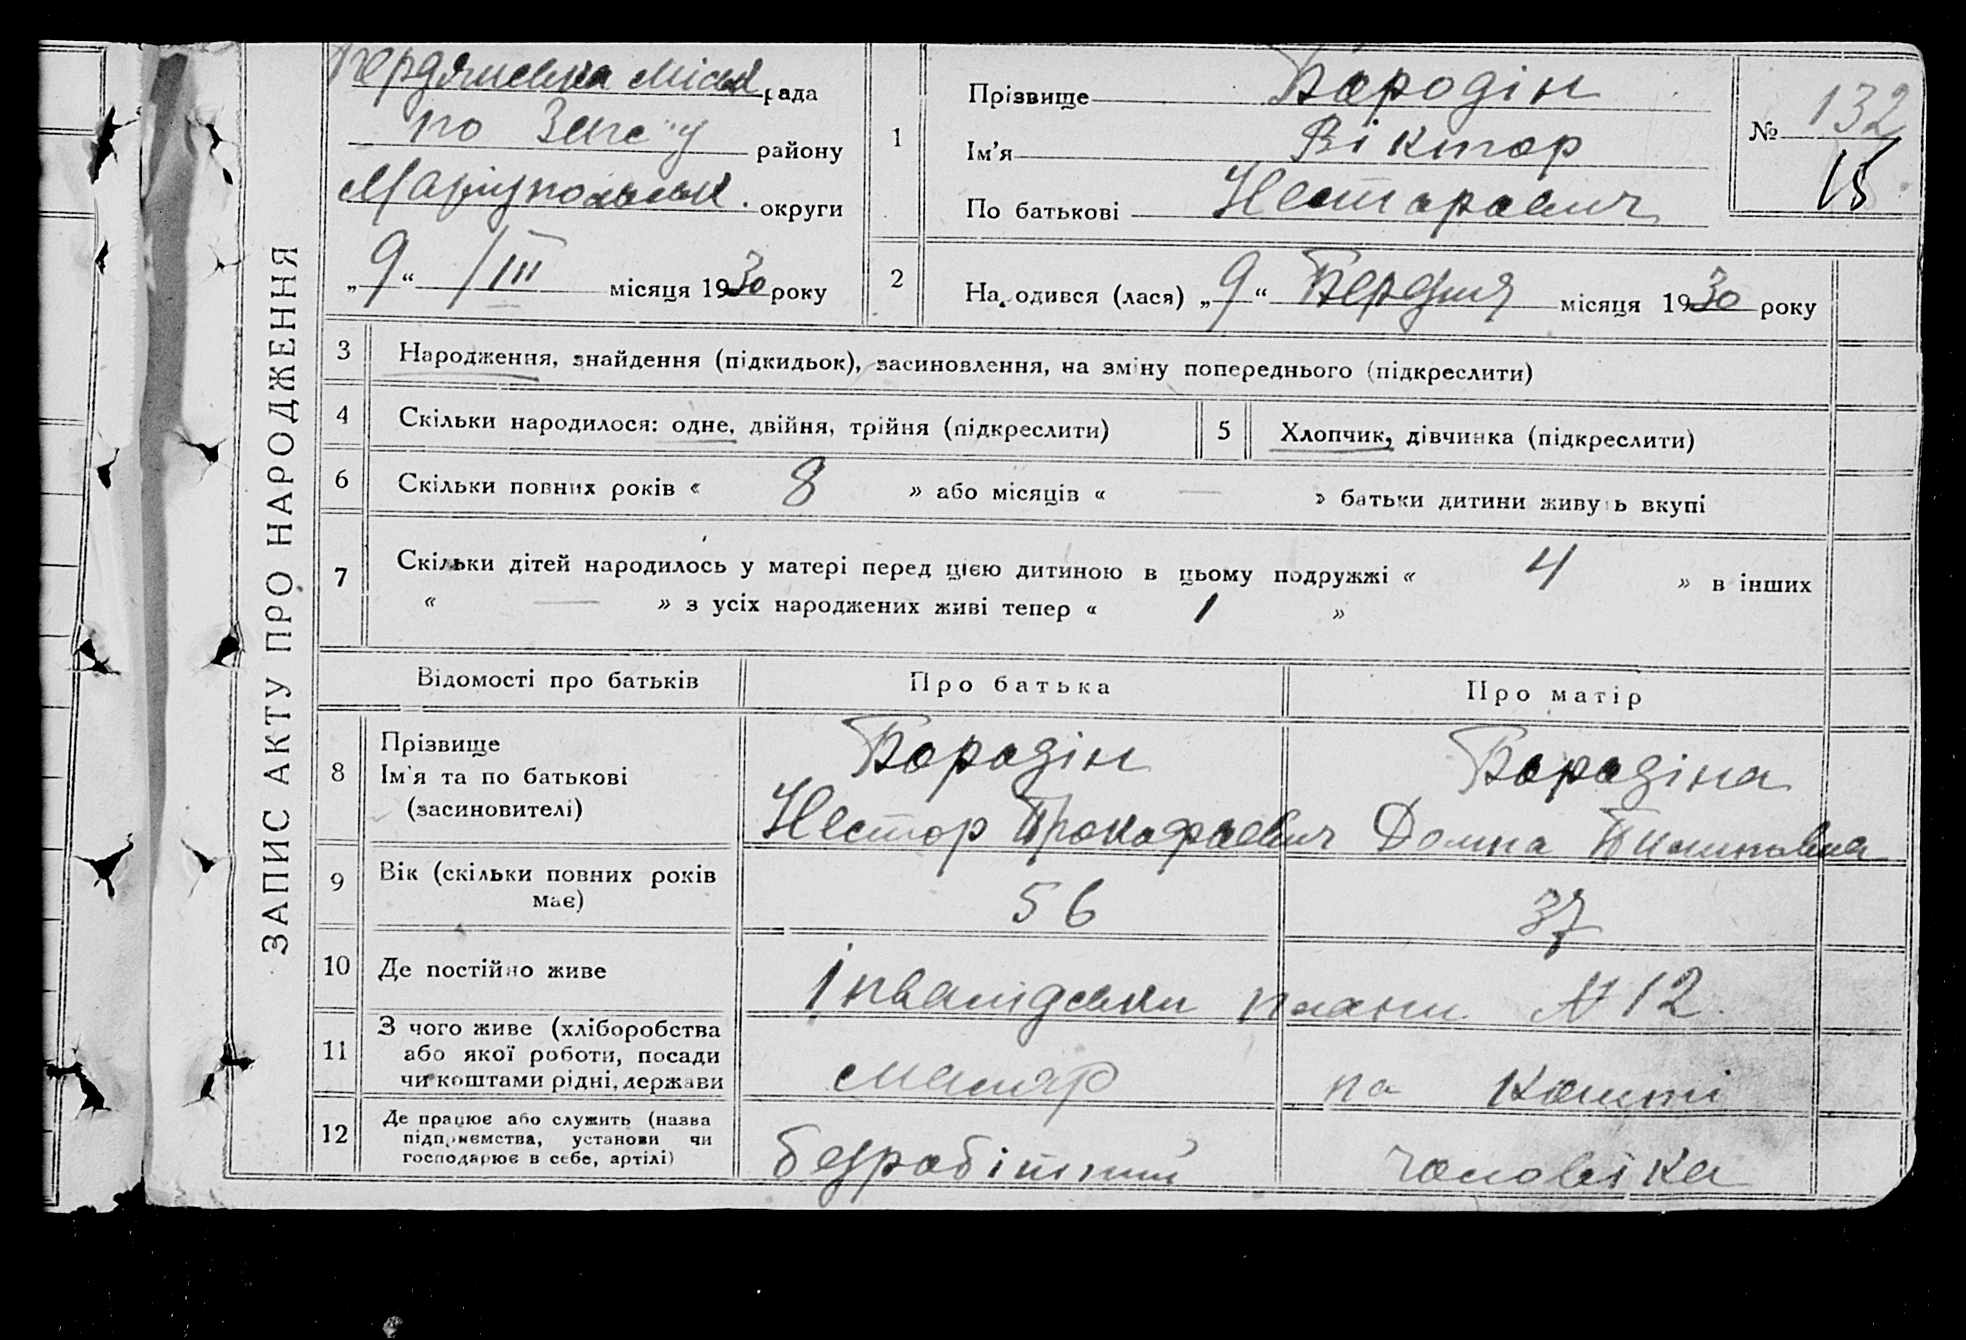 ЗАПИС АКТУ ПРО НАРОДЖЕННЯ
Бердянська міськ рада
по Загс'у району
Маріупольськ. округи
„9“ /III місяця 1930 року
1
Прізвище Бородін
Ім'я Віктор
По батькові Несторович
№ 132
15
2
Народився (лася) „9“ Березня місяця 1930 року
3 Народження, знайдення (підкидьок), засиновлення, на зміну попереднього (підкреслити)
4 Скільки народилося: одне, двійня, трійня (підкреслити)
5 Хлопчик, дівчинка (підкреслити)
6 Скільки повних років « 8 » або місяців « — » батьки дитини живуть вкупі
7 Скільки дітей народилось у матері перед цією дитиною в цьому подружжі « 4 » в інших
« — » з усіх народжених живі тепер « 1 »
Відомості про батьків Про батька Про матір
8 Прізвище
Ім'я та по батькові
(засиновителі)
Бородін
Нестор Прокофрович
Бородіна
Домна
9 Вік (скільки повних років
має)
56
37
10 Де постійно живе
Інвалідськи плани N 12.
11 З чого живе (хліборобства
або якої роботи, посади
чи коштами рідні, держави
маляр
на кошті
12 Де працює або служить (назва
підприємства, установи чи
господарює в себе, артілі)
безробітний
чоловіка